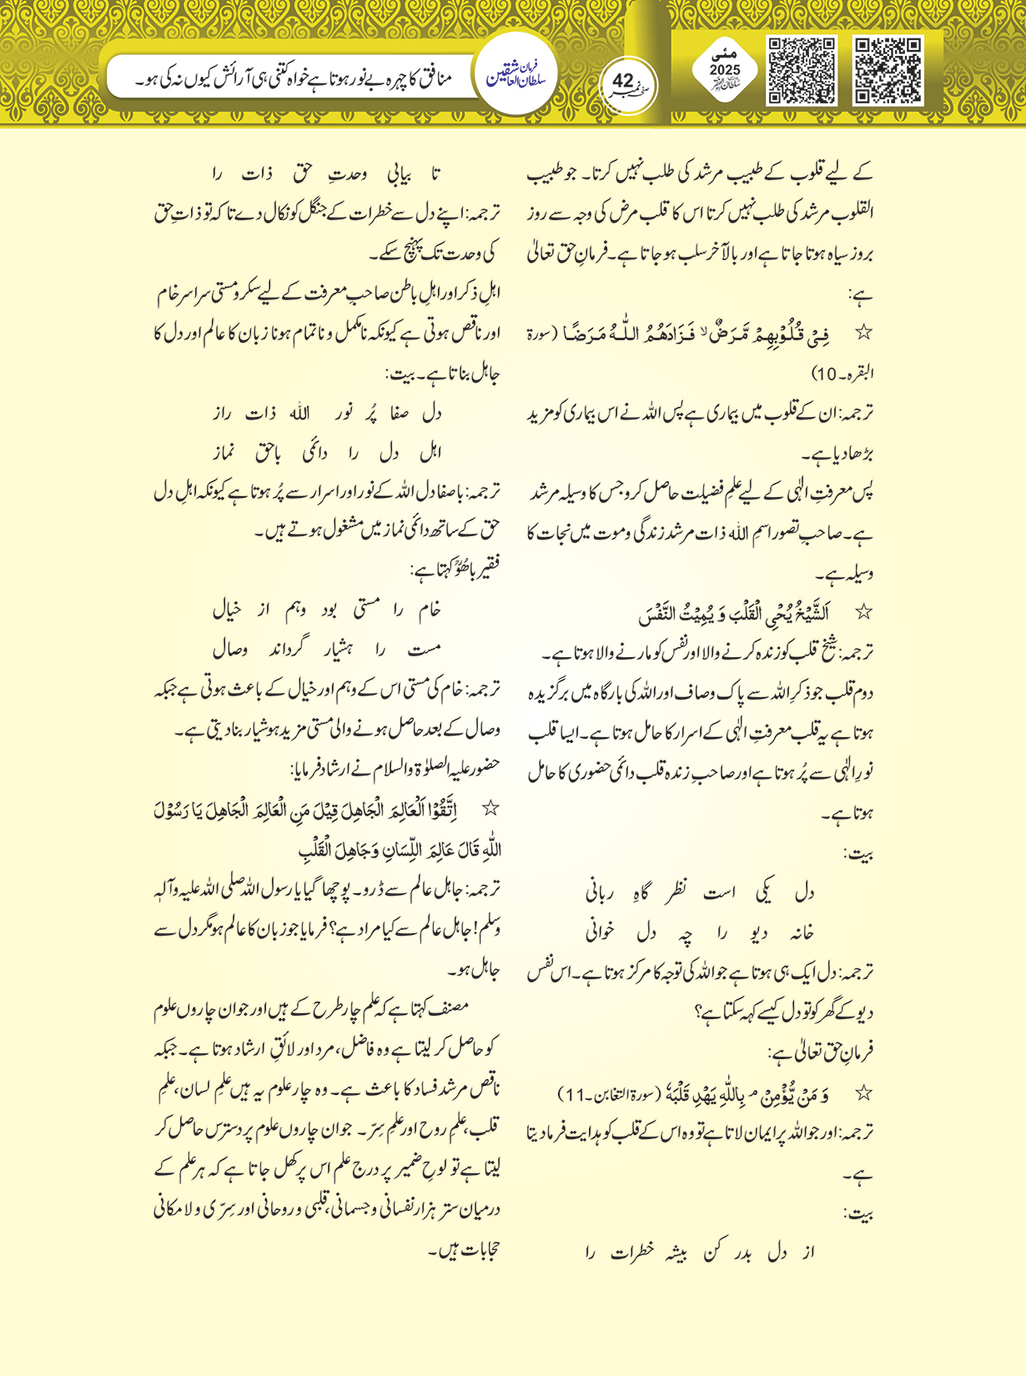 مئی
2025
صفحہ نمبر 42
فرمان سلطان العاشقین
منافق کا چہرہ بے نور ہوتا ہے خواہ کتنی ہی آرائش کیوں نہ کی ہو۔
کے لیے قلوب کے طبیب مرشد کی طلب نہیں کرتا۔ جو طبیب
القلوب مرشد کی طلب نہیں کرتا اس کا قلب مرض کی وجہ سے روز
بروز سیاہ ہوتا جاتا ہے اور بالآخر سلب ہو جاتا ہے۔ فرمانِ حق تعالیٰ
ہے:
☆ فِیْ قُلُوْبِهِمْ مَّرَضٌ ۙ فَزَادَهُمُ اللّٰهُ مَرَضًا (سورۃ
البقرہ۔10)
ترجمہ: ان کے قلوب میں بیماری ہے پس اللہ نے اس بیماری کو مزید
بڑھا دیا ہے۔
پس معرفتِ الٰہی کے لیے علمِ فضیلت حاصل کرو جس کا وسیلہ مرشد
ہے۔ صاحبِ تصور اسمِ اللہ ذات مرشد زندگی و موت میں نجات کا
وسیلہ ہے۔
☆ اَلشَّیْخُ یُحْیِ الْقَلْبَ وَ یُمِیْتُ النَّفْسَ
ترجمہ: شیخ قلب کو زندہ کرنے والا اور نفس کو مارنے والا ہوتا ہے۔
دوم قلب جو ذکرِ اللہ سے پاک و صاف اور اللہ کی بارگاہ میں برگزیدہ
ہوتا ہے یہ قلب معرفتِ الٰہی کے اسرار کا حامل ہوتا ہے۔ ایسا قلب
نورِ الٰہی سے پُر ہوتا ہے اور صاحبِ زندہ قلب دائمی حضوری کا حامل
ہوتا ہے۔
بیت:
دل یکی است نظر گاہِ ربانی
خانہ دیو را چہ دل خوانی
ترجمہ: دل ایک ہی ہوتا ہے جو اللہ کی توجہ کا مرکز ہوتا ہے۔ اس نفس
دیو کے گھر کو تو دل کیسے کہہ سکتا ہے؟
فرمانِ حق تعالیٰ ہے:
☆ وَ مَنْ یُّؤْمِنْۢ بِاللّٰهِ یَهْدِ قَلْبَهٗ (سورۃ التغابن۔11)
ترجمہ: اور جو اللہ پر ایمان لاتا ہے تو وہ اس کے قلب کو ہدایت فرما دیتا
ہے۔
بیت:
از دل بدر کن بیشہ خطرات را
تا بیابی وحدتِ حق ذات را
ترجمہ: اپنے دل سے خطرات کے جنگل کو نکال دے تاکہ تو ذاتِ حق
کی وحدت تک پہنچ سکے۔
اہلِ ذکر اور اہلِ باطن صاحبِ معرفت کے لیے سکر و مستی سراسر خام
اور ناقص ہوتی ہے کیونکہ نامکمل و ناتمام ہونا زبان کا عالم اور دل کا
جاہل بناتا ہے۔ بیت:
دل صفا پُر نور اللہ ذات راز
اہل دل را دائمی باحق نماز
ترجمہ: باصفا دل اللہ کے نور اور اسرار سے پُر ہوتا ہے کیونکہ اہلِ دل
حق کے ساتھ دائمی نماز میں مشغول ہوتے ہیں۔
فقیر باھُوؒ کہتا ہے:
خام را مستی بود وہم از خیال
مست را ہشیار گرداند وصال
ترجمہ: خام کی مستی اس کے وہم اور خیال کے باعث ہوتی ہے جبکہ
وصال کے بعد حاصل ہونے والی مستی مزید ہوشیار بنا دیتی ہے۔
حضور علیہ الصلوٰۃ والسلام نے ارشاد فرمایا:
☆ اِتَّقُوْا الْعَالِمَ الْجَاهِلَ قِیْلَ مَنِ الْعَالِمَ الْجَاهِلَ یَا رَسُوْلَ
اللّٰهِ قَالَ عَالِمَ اللِّسَانِ وَجَاهِلَ الْقَلْبِ
ترجمہ: جاہل عالم سے ڈرو۔ پوچھا گیا یا رسول اللہ صلی اللہ علیہ وآلہٖ
وسلم! جاہل عالم سے کیا مراد ہے؟ فرمایا جو زبان کا عالم ہو مگر دل سے
جاہل ہو۔
مصنف کہتا ہے کہ علم چار طرح کے ہیں اور جو ان چاروں علوم
کو حاصل کر لیتا ہے وہ فاضل، مرد اور لائقِ ارشاد ہوتا ہے۔ جبکہ
ناقص مرشد فساد کا باعث ہے۔ وہ چار علوم یہ ہیں علمِ لسان، علمِ
قلب، علمِ روح اور علمِ سِرّ۔ جو ان چاروں علوم پر دسترس حاصل کر
لیتا ہے تو لوحِ ضمیر پر درج علم اس پر کھل جاتا ہے کہ ہر علم کے
درمیان ستر ہزار نفسانی و جسمانی، قلبی و روحانی اور سِرّی و لامکانی
حجابات ہیں۔